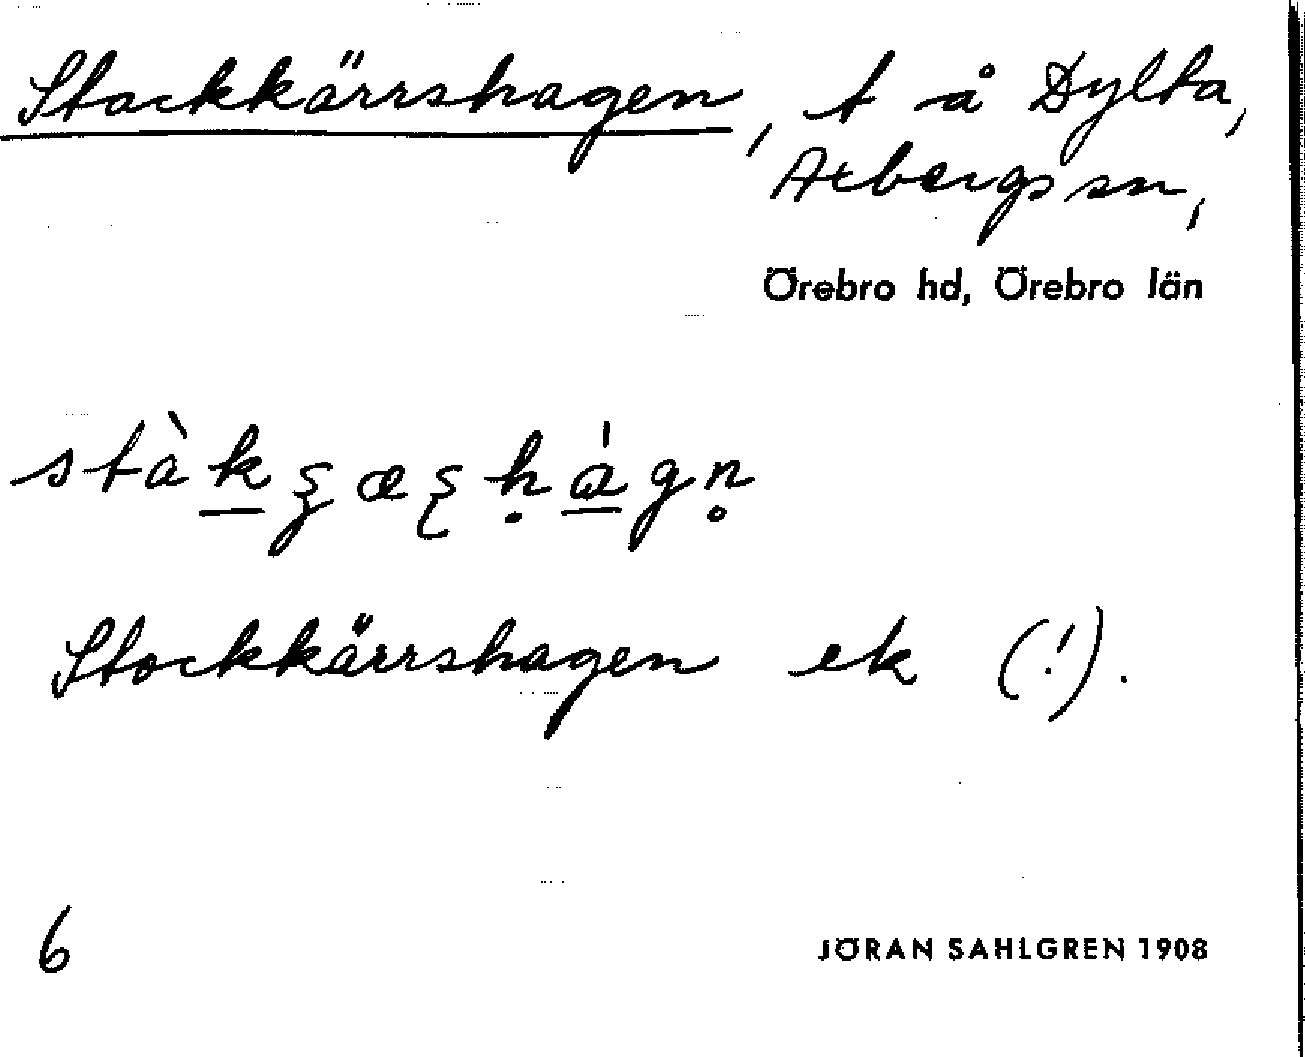 Stockkärrshagen, t å Dylta,
Axbergs sn,
Örebro hd, Örebro län
Stockkärrshagen ek (!).
6
JÖRAN SAHLGREN 1908